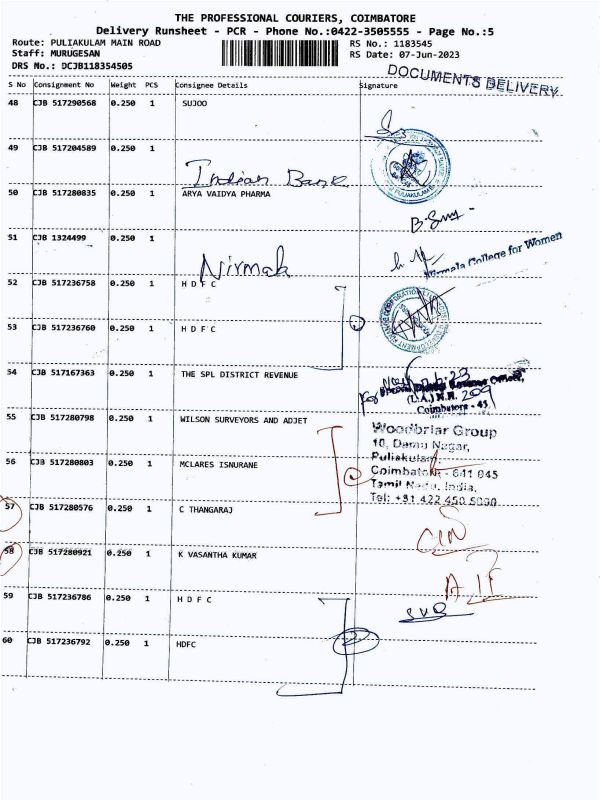 THE PROFESSIONAL COURIERS, COIMBATORE
Delivery Runsheet - PCR - Phone No.:0422-3505555 - Page No.:5
Route: PULIAKULAM MAIN ROAD
RS No.: 1183545
Staff: MURUGESAN
RS Date: 07-Jun-2023
DRS No.: DCJB118354505
DOCUMENTS DELIVERY
S No Consignment No Weight PCS Consignee Details Signature
48 CJB 517290568 0.250 1 SUJOO
49 CJB 517204589 0.250 1
Indian Bank
50 CJB 517280835 0.250 1 ARYA VAIDYA PHARMA
51 CJB 1324499 0.250 1
Nirmala College for Women
Nirmala
52 CJB 517236758 0.250 1 H D F C
53 CJB 517236760 0.250 1 H D F C
1
54 CJB 517167363 0.250 1 THE SPL DISTRICT REVENUE
Special District Revenue Officer,
(L.A.) N.H. 209
Coimbatore - 45
55 CJB 517280798 0.250 1 WILSON SURVEYORS AND ADJET
Woodbriar Group
10, Damu Nagar,
Puliakulam
56 CJB 517280803 0.250 1 MCLARES ISNURANE
Coimbatore - 641 045
Tamil Nadu, India.
Tel: +91 422 450 5000
57 CJB 517280576 0.250 1 C THANGARAJ
CIN
58 CJB 517280921 0.250 1 K VASANTHA KUMAR
59 CJB 517236786 0.250 1 H D F C
2
60 CJB 517236792 0.250 1 HDFC